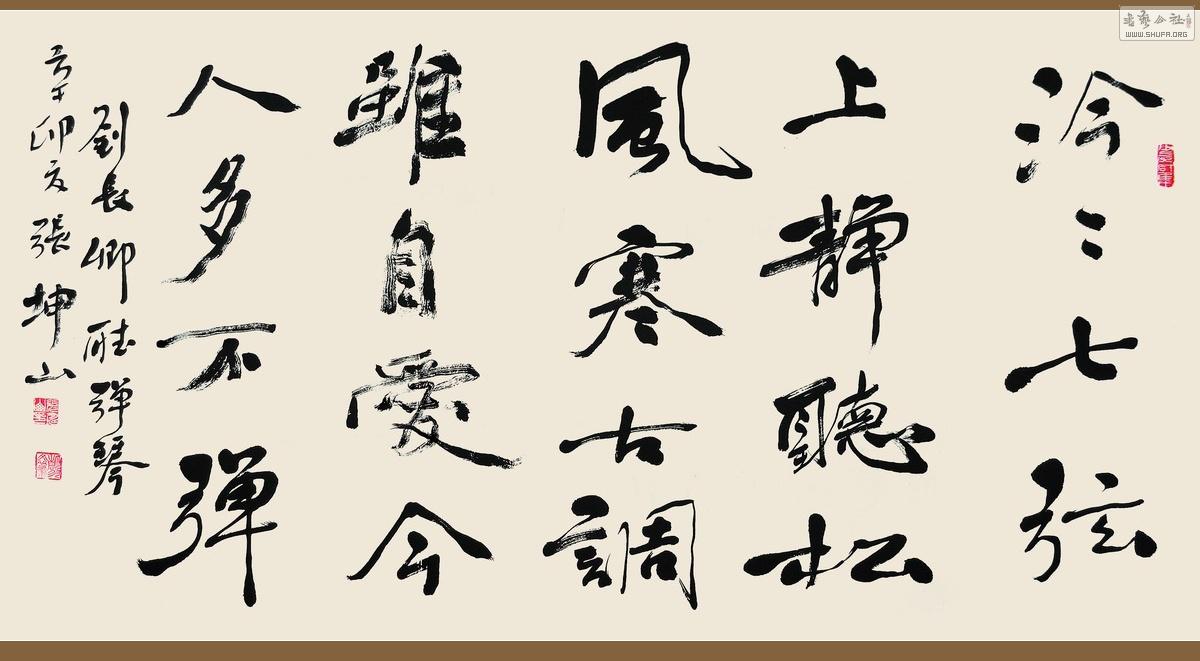 泠〻七弦
上靜聽松
風寒古調
雖自愛今
人多不彈
劉長卿聽彈琴
辛卯夏張坤山
书艺公社
WWW.SHUFA.ORG